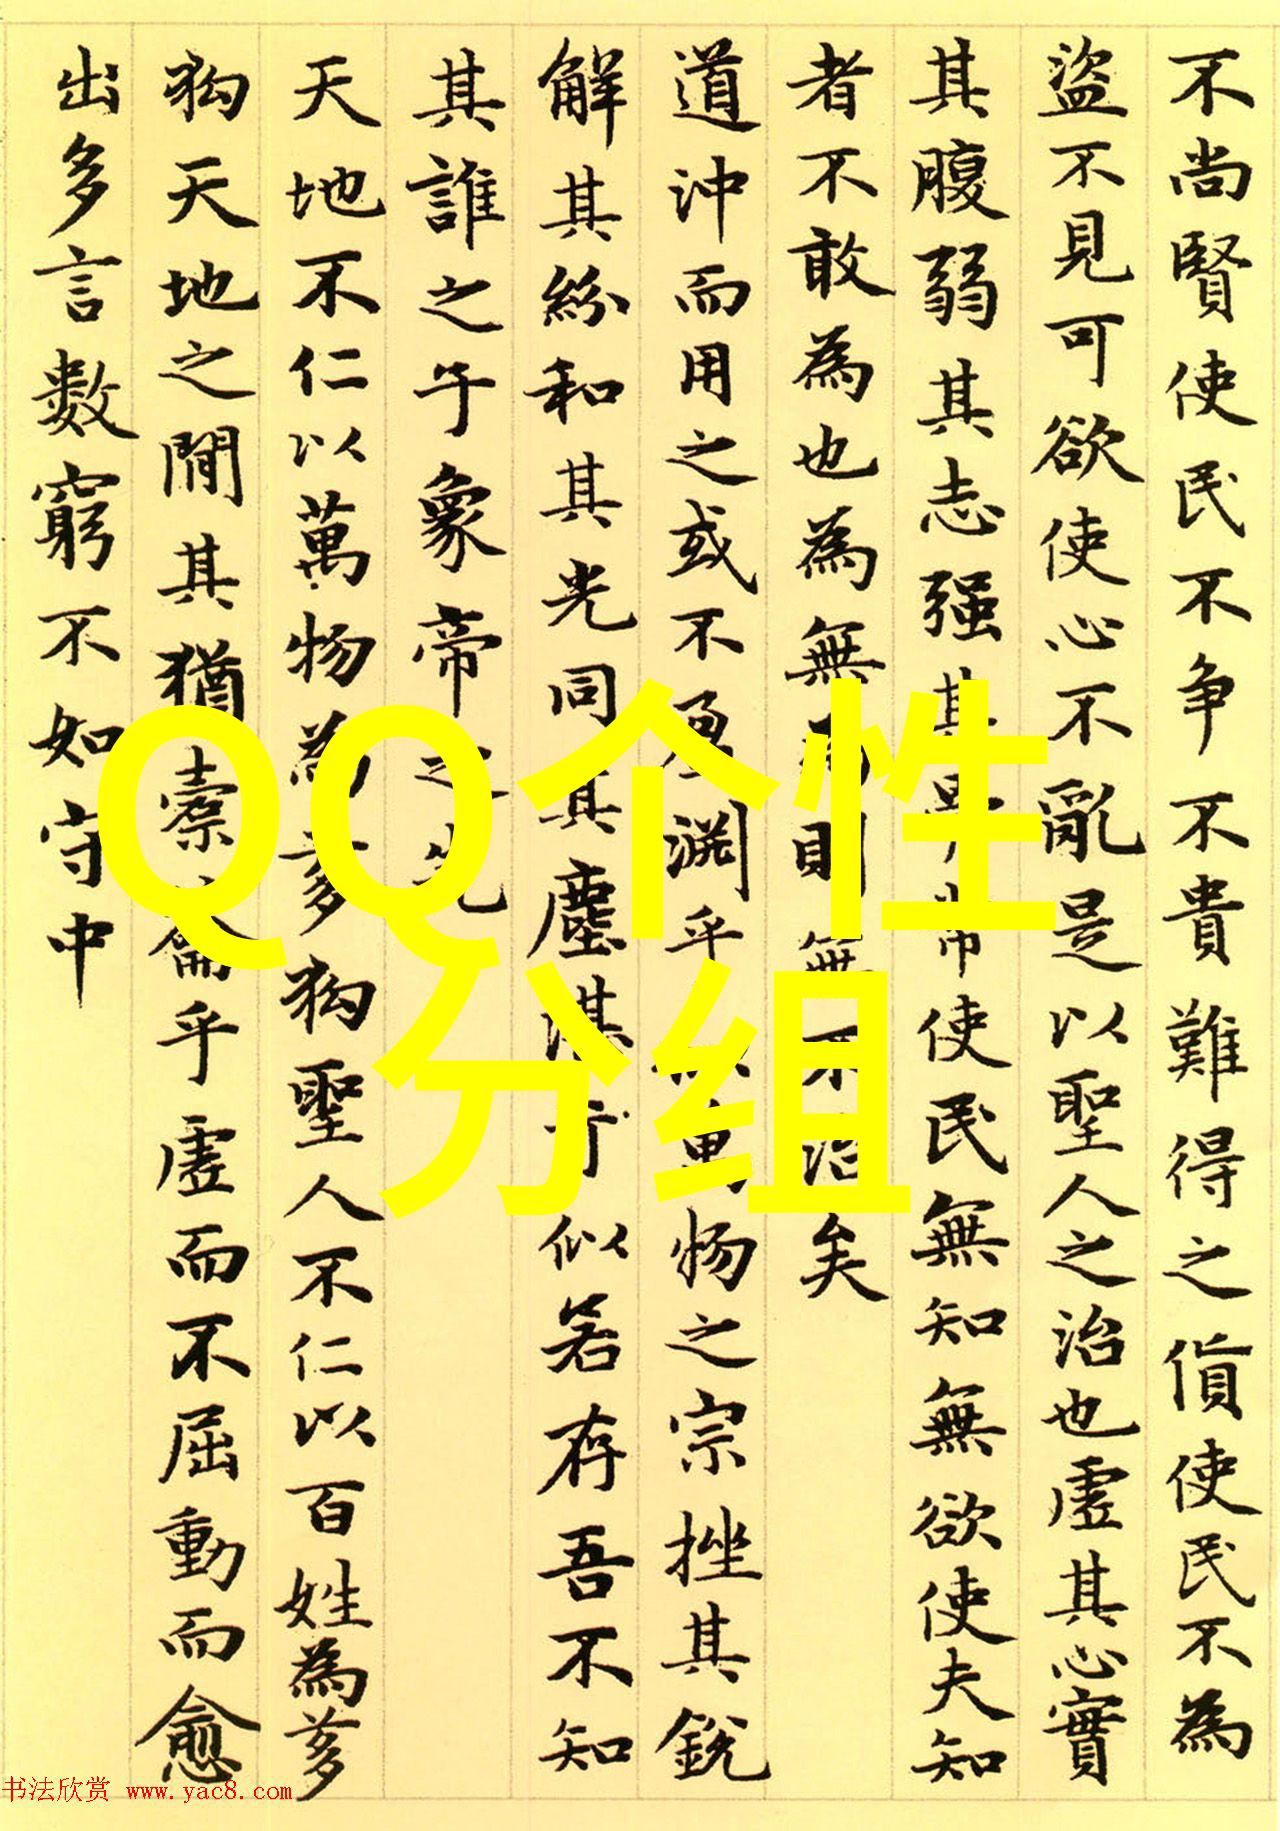 不尚賢使民不争不貴難得之貨使民不為
盜不見可欲使心不亂是以聖人之治也虛其心實
其腹弱其志强其骨常使民無知無欲使夫知
者不敢為也為無為則無不治矣
道沖而用之或不盈淵乎似萬物之宗挫其銳
解其紛和其光同其塵湛乎似若存吾不知
其誰之子象帝之先
天地不仁以萬物為芻狗聖人不仁以百姓為芻
狗天地之間其猶橐籥乎虛而不屈動而愈
出多言數窮不如守中
QQ个性
分组
书法欣赏 www.yac8.com